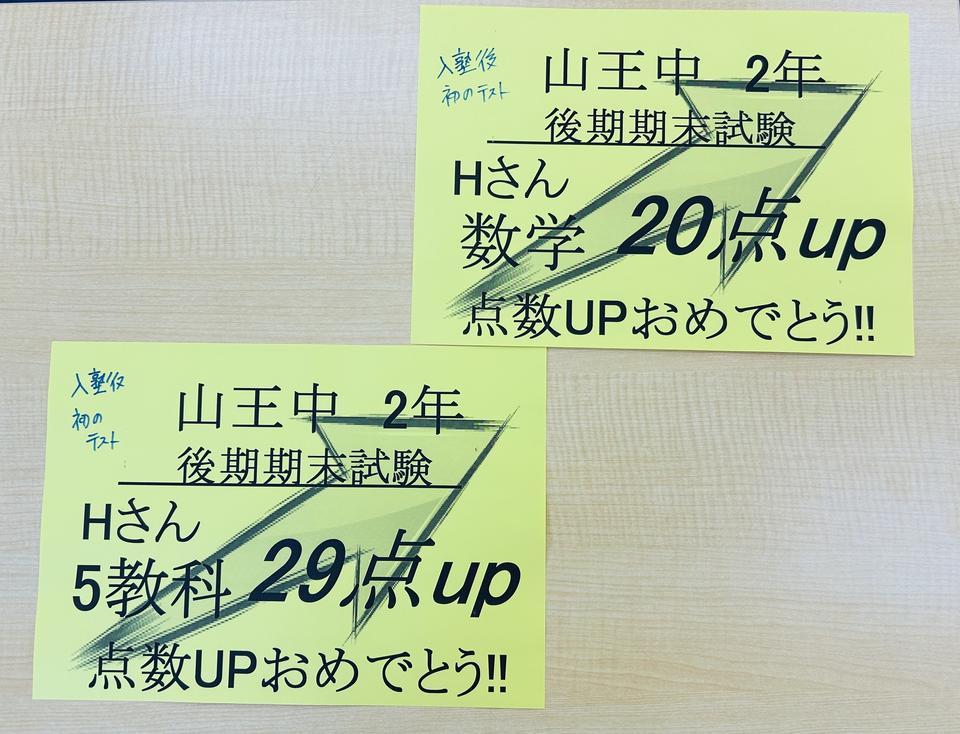 入塾後
初のテスト
山王中 2年
後期期末試験
Hさん
数学 20点up
点数UPおめでとう!!
入塾後
初の
テスト
山王中 2年
後期期末試験
Hさん
5教科 29点up
点数UPおめでとう!!